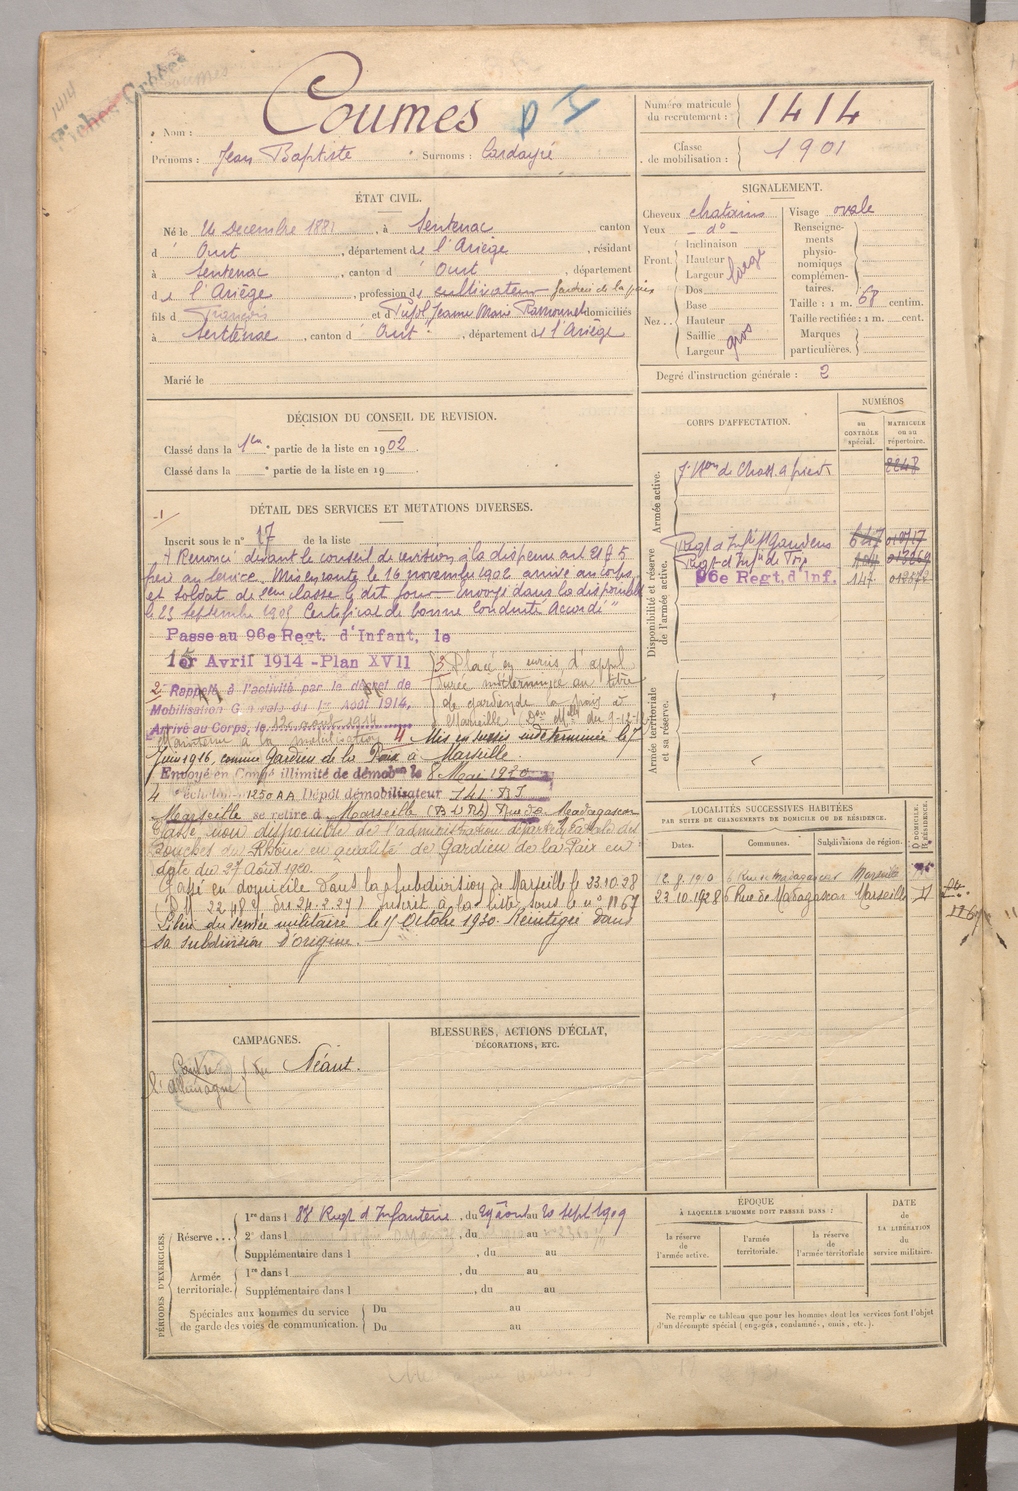 1414
Fiches
Nom : Coumes
Numéro matricule du recrutement : 1414
Prénoms : Jean Baptiste Surnoms : Cardayié
Classe de mobilisation : 1901
ÉTAT CIVIL.
Né le 4 Décembre 1881, à Sentenac canton
d' Oust, département de l'Ariège, résidant
à Sentenac, canton d' Oust, département
de l'Ariège, profession de cultivateur gardien de la paix
fils d François et d Pujol Jeanne Marie domiciliés
à Sentenac, canton d' Oust, département de l'Ariège
Marié le
SIGNALEMENT.
Cheveux chatains
Yeux - do -
Front. Inclinaison
Hauteur
Largeur large
Nez .. Dos
Base
Hauteur
Saillie
Largeur gros
Visage ovale
Renseignements physionomiques complémentaires.
Taille : 1 m. 68 centim.
Taille rectifiée : 1 m. cent.
Marques particulières.
Degré d'instruction générale : 2
DÉCISION DU CONSEIL DE REVISION.
Classé dans la 1re partie de la liste en 1902
Classé dans la partie de la liste en 19
CORPS D'AFFECTATION.
NUMÉROS
au CONTRÔLE spécial.
MATRICULE ou au répertoire.
Armée active.
de Chass. à pieds 2248
Disponibilité et réserve de l'armée active.
Regt d'Infie St Gaudens 647
Regt d'Infie de
96e Regt. d'Inf. 147
Armée territoriale et sa réserve.
DÉTAIL DES SERVICES ET MUTATIONS DIVERSES.
Inscrit sous le n° 17 de la liste
Renoncé devant le conseil de revision à la dispense art 21 § 5
au service. Mis en route le 16 novembre 1902 arrivé au corps
et soldat de 2eme classe le dit jour. Envoyé dans la disponibilité
le 23 septembre 1905 Certificat de bonne Conduite Accordé
Passe au 96e Regt. d'Infant, le
15 Avril 1914 - Plan XVII
2 Rappelé à l'activité par le décret de
Mobilisation Générale du 1er Août 1914,
Arrivé au Corps, le 12 août 1914
3 Placé en sursis d'appel
durée indéterminée au titre
de gardien de la paix à
Marseille
Maintenu à la mobilisation
4 Mis en sursis indéterminée le 7
Juin 1916, comme Gardien de la Paix à Marseille.
Envoyé en Congé illimité de démobon le 8 Mai 1920
4e échelon n° 1250 AA Dépôt démobilisateur 141 RI
Marseille se retire à Marseille (B d R) Rue de Madagascar
Classé non disponible de l'administration départementale des
Bouches du Rhône en qualité de Gardien de la Paix en
date du 27 Août 1920.
Passé en domicile dans la subdivision de Marseille le 23.10.28
du 24.2.29) Inscrit à la liste sous le n° 1167
Libéré du service militaire le 15 Octobre 1930. Réintégré dans
sa subdivision d'origine.
LOCALITÉS SUCCESSIVES HABITÉES
PAR SUITE DE CHANGEMENTS DE DOMICILE OU DE RÉSIDENCE.
Dates.
Communes.
Subdivisions de région.
D DOMICILE. R RÉSIDENCE.
12.8.1910 6 Rue de Madagascar Marseille
23.10.1928 6 Rue de Madagascar Marseille D
CAMPAGNES.
Contre l'Allemagne
Néant.
BLESSURES, ACTIONS D'ÉCLAT,
DÉCORATIONS, ETC.
PÉRIODES D'EXERCICES.
Réserve ...
1re dans l 88 Regt d'Infanterie, du 29 août au 20 sept 1909
2e dans l , du au
Supplémentaire dans l , du au
Armée territoriale.
1re dans l , du au
Supplémentaire dans l , du au
Spéciales aux hommes du service
de garde des voies de communication.
Du au
Du au
ÉPOQUE
À LAQUELLE L'HOMME DOIT PASSER DANS :
la réserve de l'armée active.
l'armée territoriale.
la réserve de l'armée territoriale
DATE de LA LIBÉRATION du service militaire.
Ne remplir ce tableau que pour les hommes dont les services font l'objet
d'un décompte spécial (engagés, condamnés, omis, etc.).